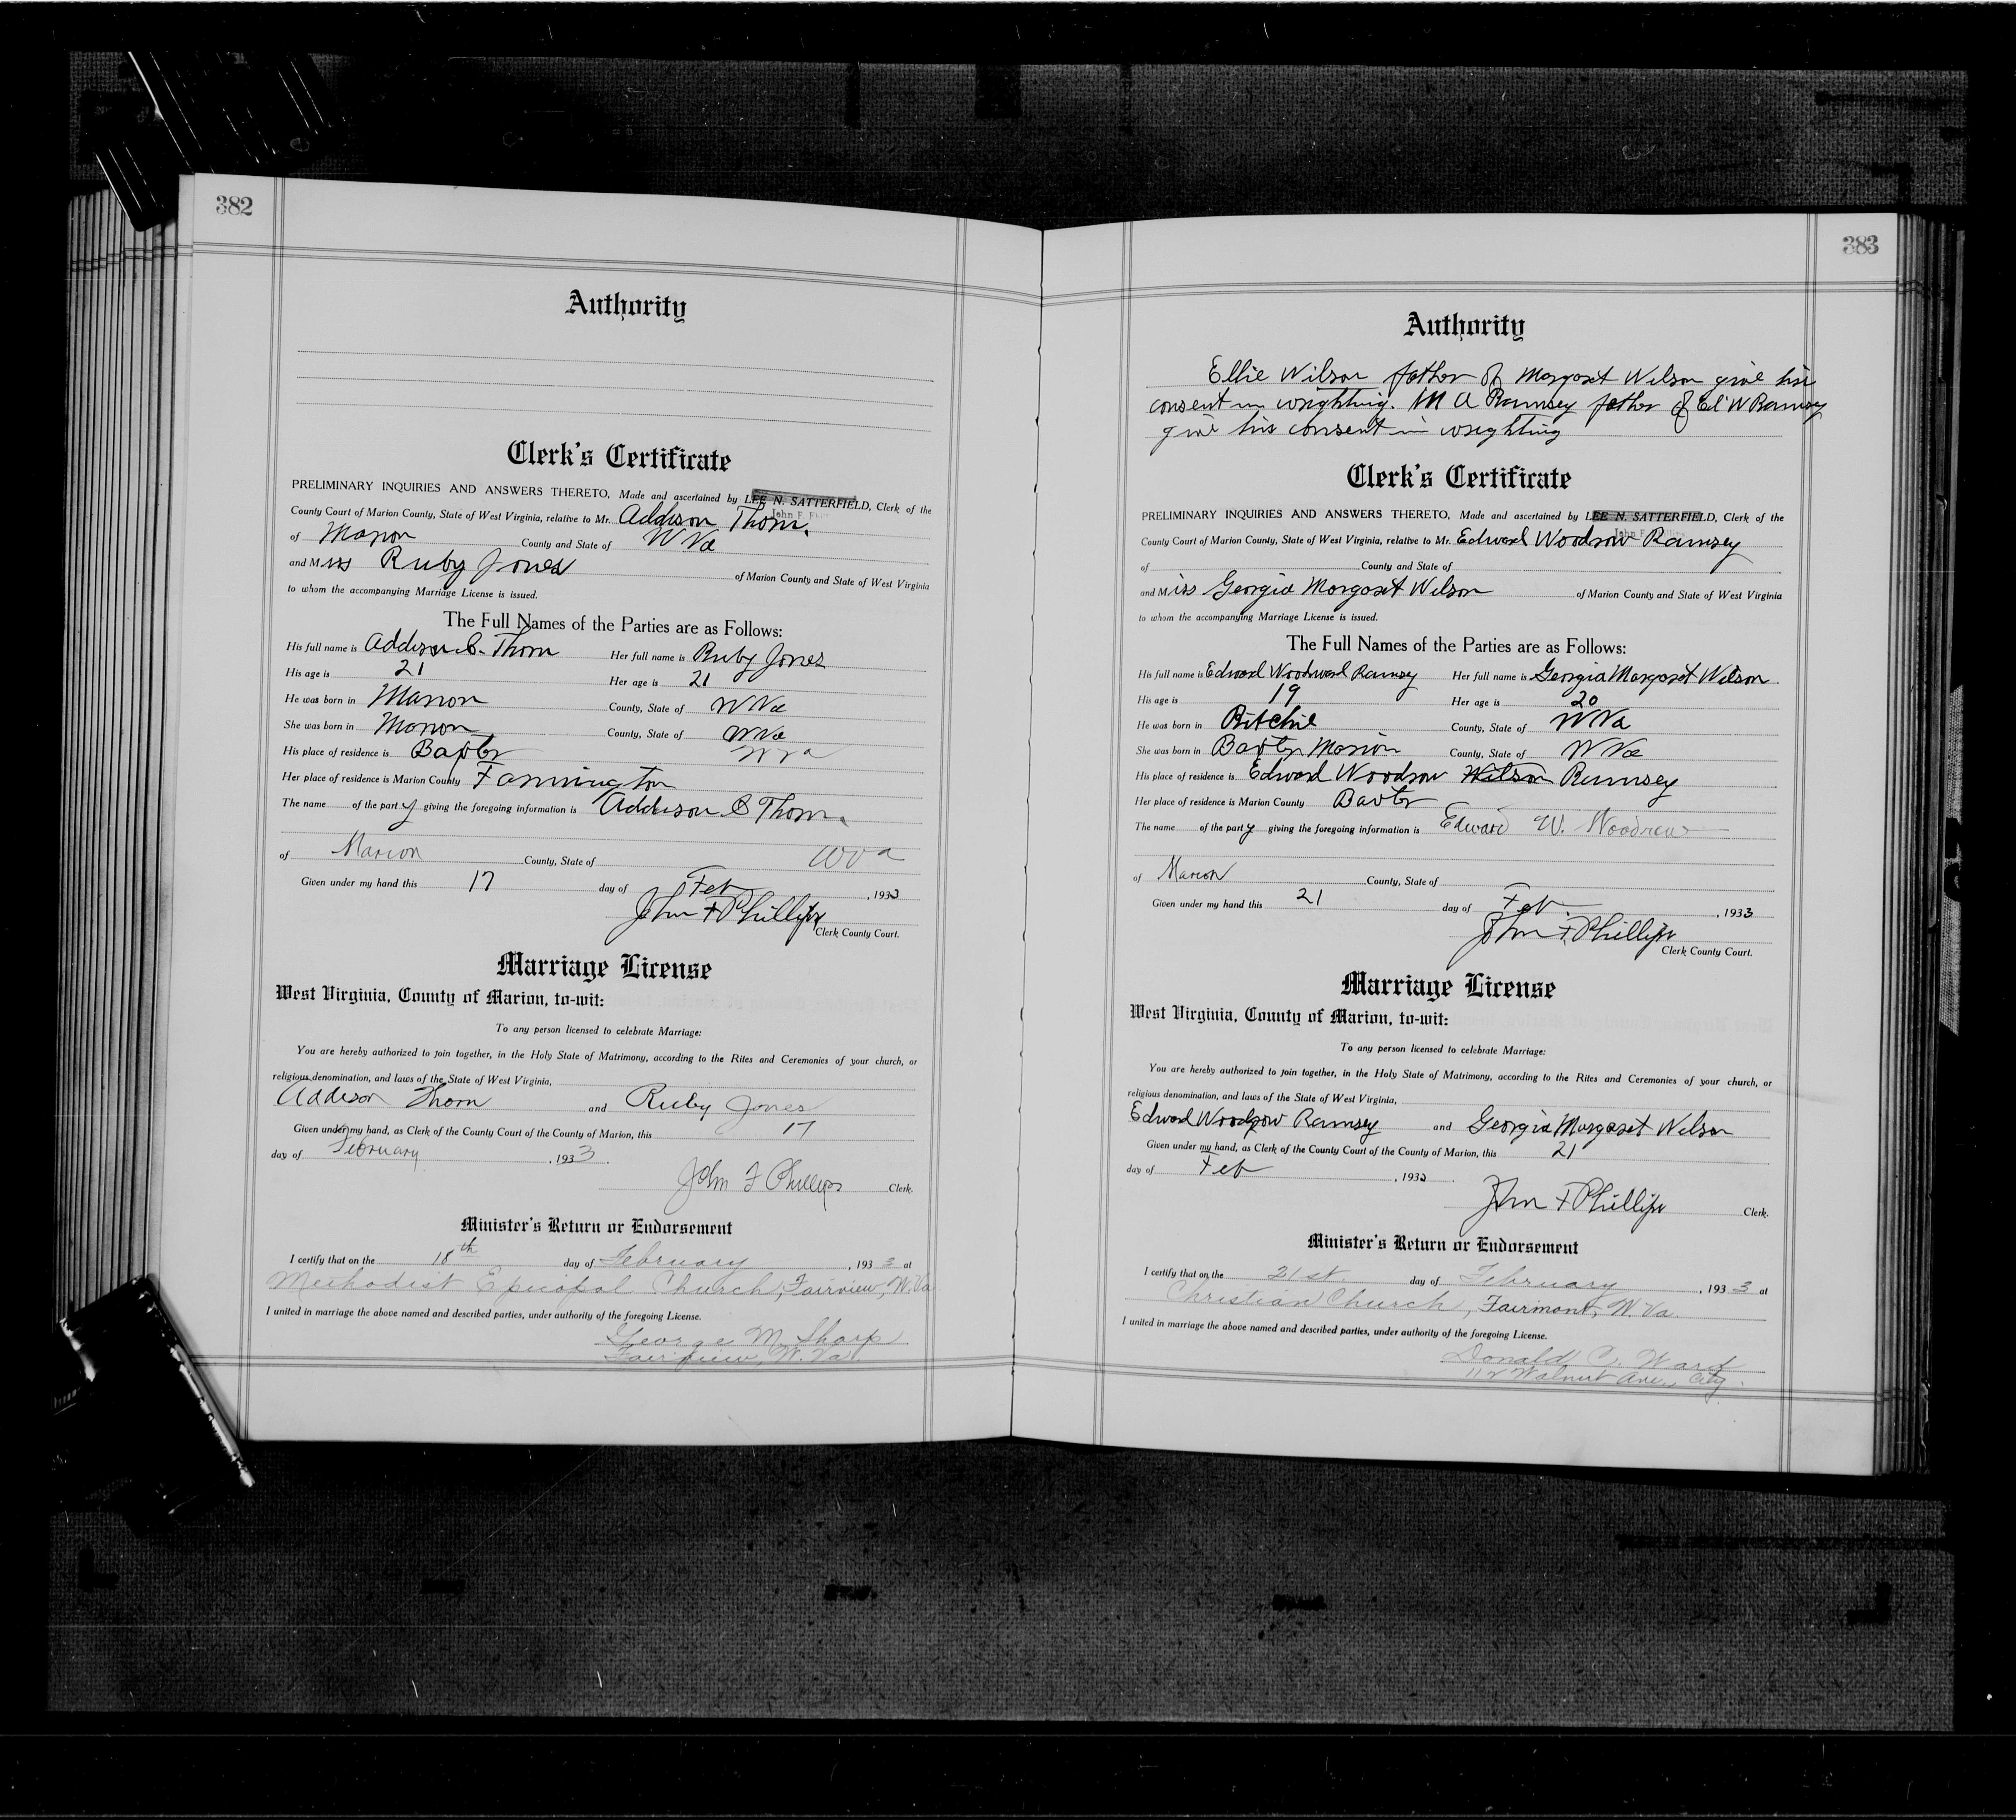 382
Authority
Clerk's Certificate
PRELIMINARY INQUIRIES AND ANSWERS THERETO, Made and ascertained by LEE N. SATTERFIELD, Clerk of the
County Court of Marion County, State of West Virginia, relative to Mr. Addison Thorn.
of Marion County and State of W Va
and Miss Ruby Jones of Marion County and State of West Virginia
to whom the accompanying Marriage License is issued.
The Full Names of the Parties are as Follows:
His full name is Addison C. Thorn Her full name is Ruby Jones
His age is 21 Her age is 21
He was born in Marion County, State of W Va
She was born in Marion County, State of W Va
His place of residence is Baxter W Va
Her place of residence is Marion County Farmington
The name of the party giving the foregoing information is Addison C Thorn.
of Marion County, State of W Va
Given under my hand this 17 day of Feb, 1933
John F Phillips
Clerk County Court.
Marriage License
West Virginia, County of Marion, to-wit:
To any person licensed to celebrate Marriage:
You are hereby authorized to join together, in the Holy State of Matrimony, according to the Rites and Ceremonies of your church, or
religious denomination, and laws of the State of West Virginia,
Addison Thorn and Ruby Jones
Given under my hand, as Clerk of the County Court of the County of Marion, this 17
day of February, 1933.
John F Phillips Clerk.
Minister's Return or Endorsement
I certify that on the 18th day of February, 1933 at
Methodist Epicopal Church, Fairview, W. Va
I united in marriage the above named and described parties, under authority of the foregoing License.
George M. Sharp
Fairview, W. Va.
383
Authority
Ellie Wilson father of Margaret Wilson give his
consent in wrighting. M A Ramsey father of Ed W Ramsey
give his consent in wrighting
Clerk's Certificate
PRELIMINARY INQUIRIES AND ANSWERS THERETO, Made and ascertained by LEE N. SATTERFIELD, Clerk of the
County Court of Marion County, State of West Virginia, relative to Mr. Edward Woodrow Ramsey
of County and State of
and Miss Georgia Margaret Wilson of Marion County and State of West Virginia
to whom the accompanying Marriage License is issued.
The Full Names of the Parties are as Follows:
His full name is Edward Woodward Ramsey Her full name is Georgia Margaret Wilson
His age is 19 Her age is 20
He was born in Ritchie County, State of W Va
She was born in Baxter Marion County, State of W Va
His place of residence is Edward Woodrow Wilson Ramsey
Her place of residence is Marion County Baxter
The name of the party giving the foregoing information is Edward W. Woodrow
of Marion County, State of
Given under my hand this 21 day of Feb, 1933
John F. Phillips
Clerk County Court.
Marriage License
West Virginia, County of Marion, to-wit:
To any person licensed to celebrate Marriage:
You are hereby authorized to join together, in the Holy State of Matrimony, according to the Rites and Ceremonies of your church, or
religious denomination, and laws of the State of West Virginia,
Edward Woodrow Ramsey and Georgia Margaret Wilson
Given under my hand, as Clerk of the County Court of the County of Marion, this 21
day of Feb, 1933.
John F Phillips Clerk.
Minister's Return or Endorsement
I certify that on the 21st day of February, 1933 at
Christian Church, Fairmont, W. Va.
I united in marriage the above named and described parties, under authority of the foregoing License.
Donald C. Ward
112 Walnut Ave., City.